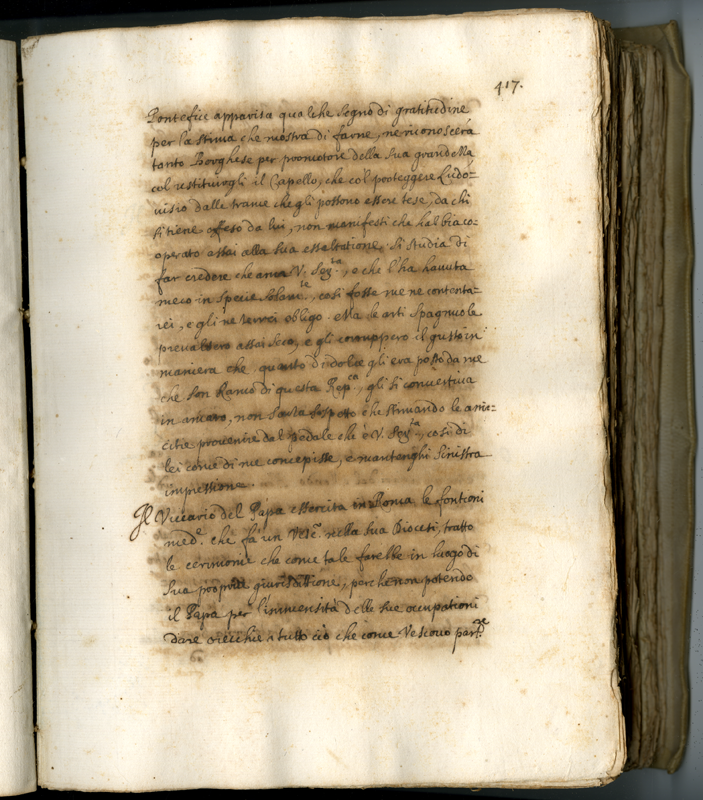 417.
Pontefice apparisca qualche segno di gratitudine
per la stima che mostra di farne, ne riconoscerà
tanto Borghese per promotore della sua grandezza
col restituirgli il Capello, che col proteggere Ludo=
uisio dalle trame che gli possono essere tese, da chi
si tiene offeso da lui, non manifesti che habbia co=
operato assai alla sua essaltatione. Si studia di
far credere che ama V. Ser.ra, e che l'ha hauuta
meco in specie solam.te, così fosse me ne contenta=
rei, e gli ne terrei obligo. Ma le arti Spagnuole
preualsero assai seco, e gli corruppero il gusto in
maniera che quanto di dolce gli era posto da me
che son Ramo di questa Rep.ca, gli si conuertiua
in amaro, non senza sospetto che stimando le ami=
citie prouenire dal pedale che è V. Ser.ra, così di
lei come di me concepisse, e mantenghi sinistra
impressione.
Il Viccario del Papa essercita in Roma le fontioni
med.e che fà un Vesc.o nella sua Diocesi, tratto
le cerimonie che come tale farebbe in luogo di
sua propria giurisdittione, perche non potendo
il Papa per l'immensità delle sue occupationi
dare orecchie à tutto ciò che come Vescouo part.re